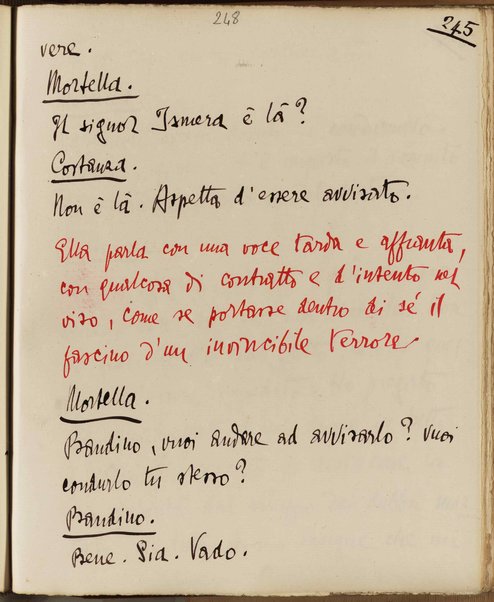 248
245
vere.
Mortella.
Il signor Ismera è là?
Costanza.
Non è là. Aspetta d'essere avvisato.
Ella parla con una voce tarda e affranta,
con qualcosa di contratto e d'intento nel
viso, come se portasse dentro di sé il
fascino d'un invincibile terrore.
Mortella.
Bandino, vuoi andare ad avvisarlo? Vuoi
condurlo tu stesso?
Bandino.
Bene. Sia. Vado.